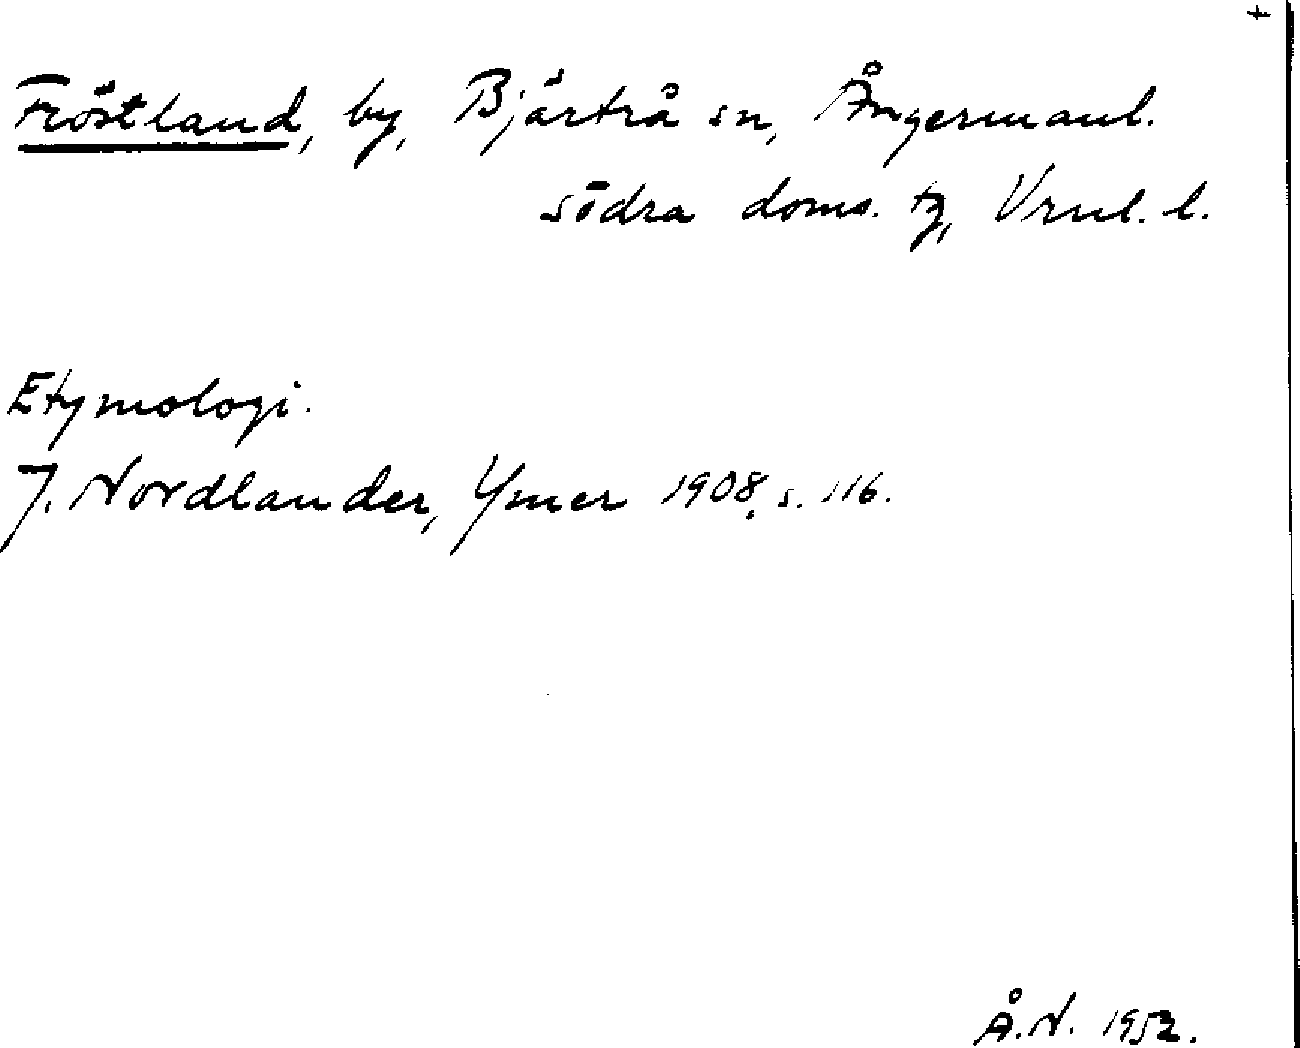 +
Fröstland, by, Bjärtrå sn, Ångermanl.
södra doms. tg, Vrnl. l.
Etymologi.
J. Nordlander, Ymer 1908, s. 116.
Å.N. 1952.